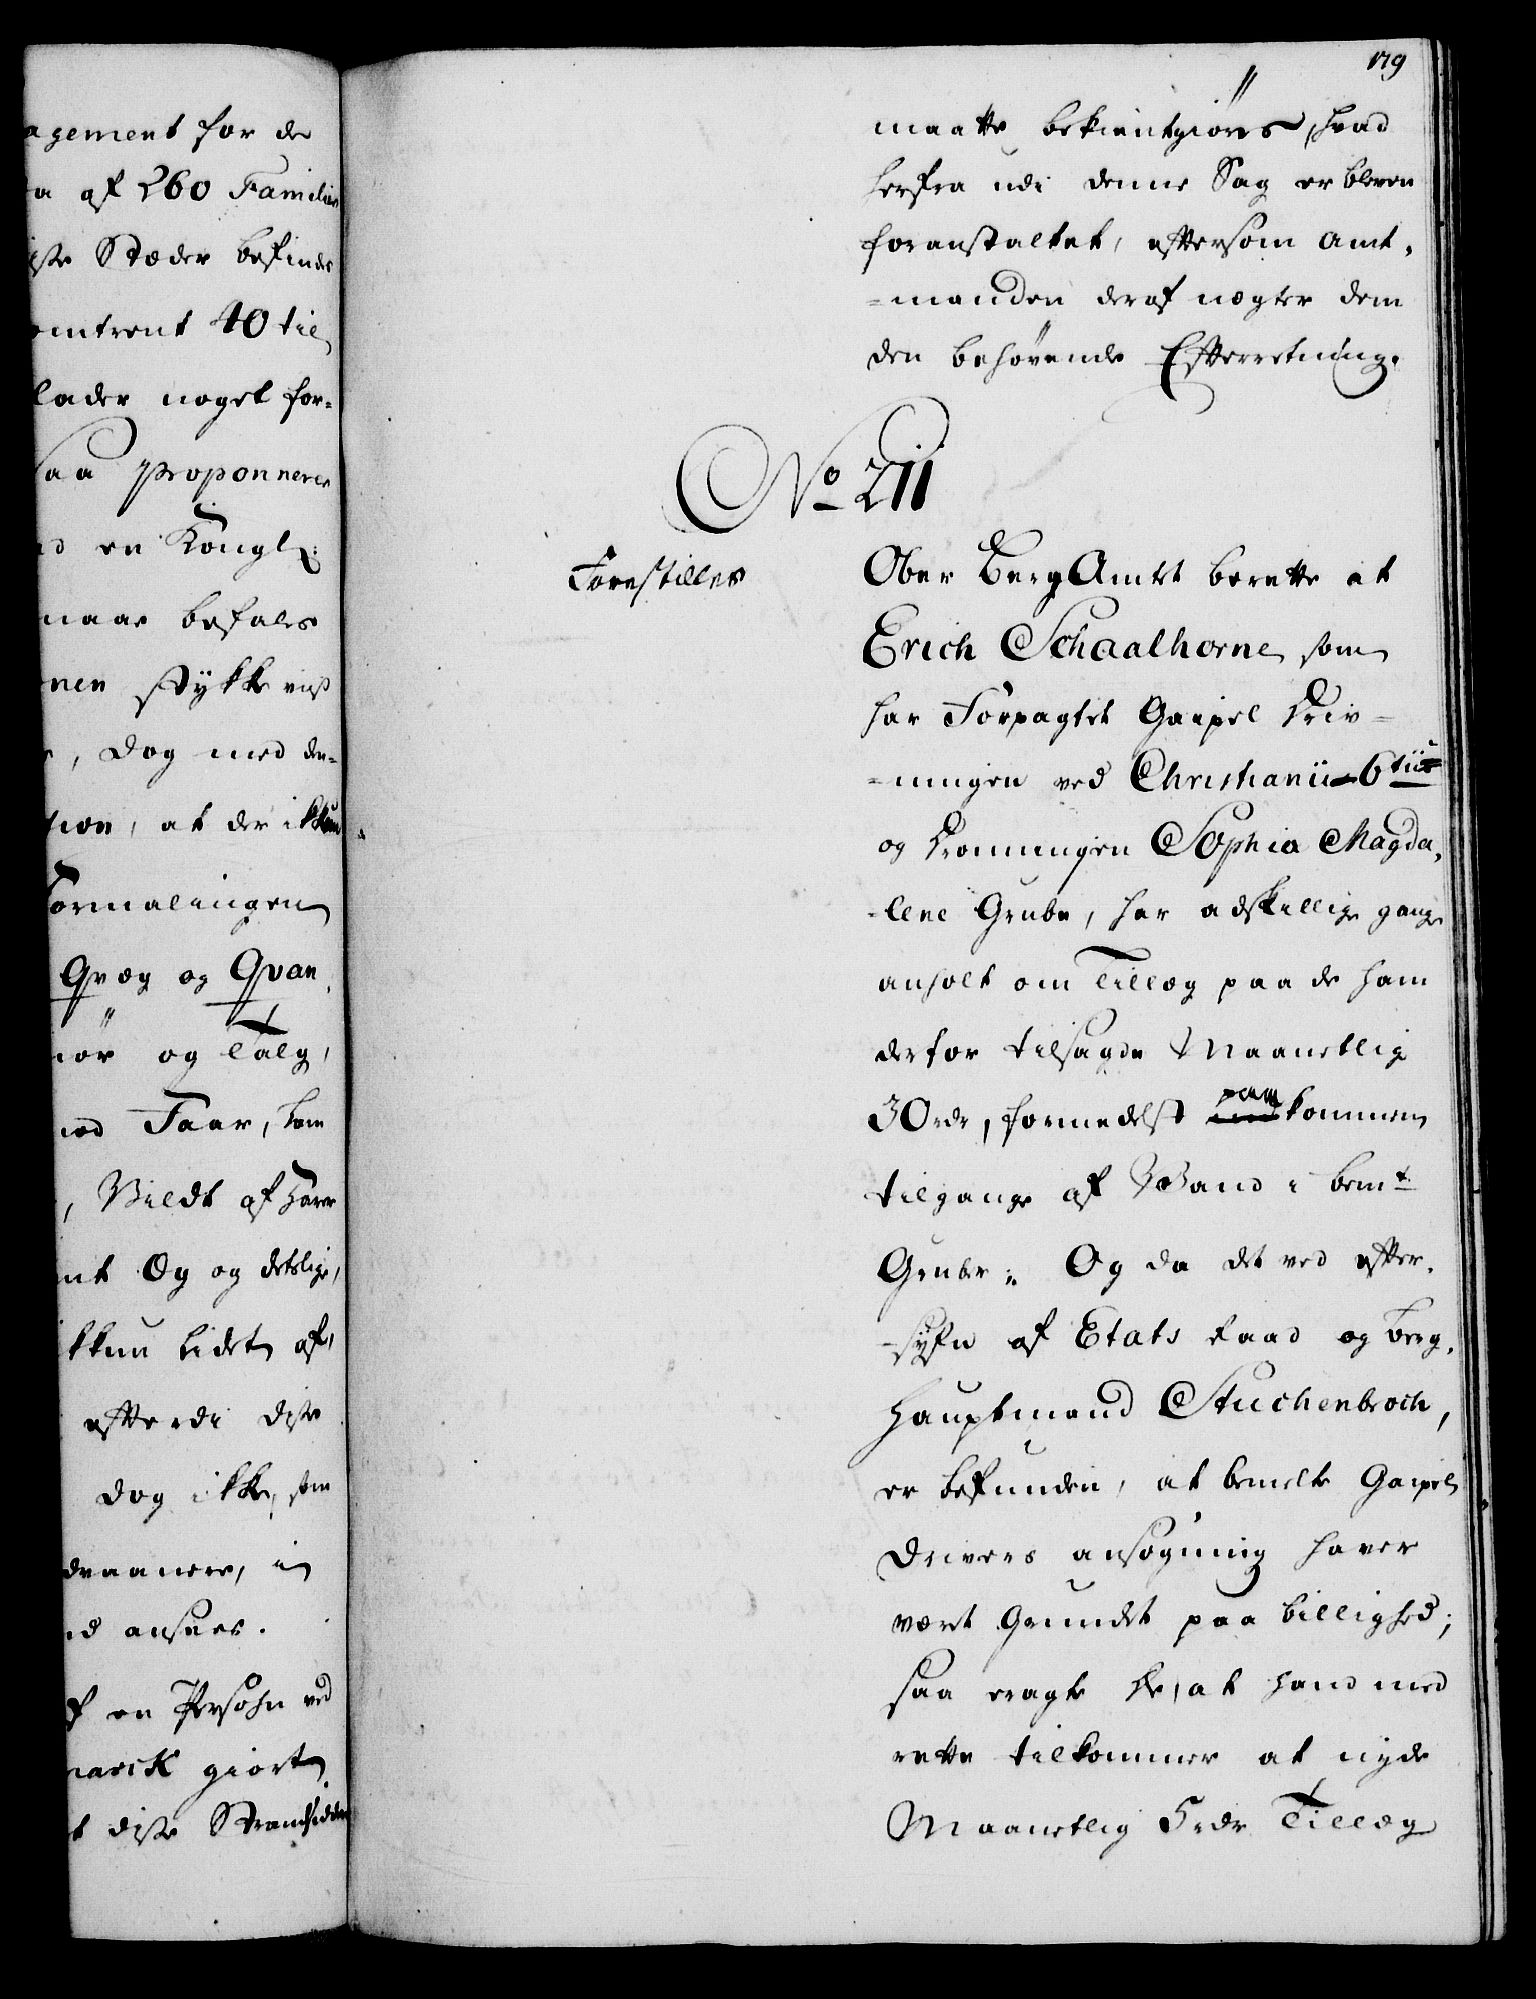 agement for de
a af 260 Familier
iste Stæder befindes
omtrent 40 til
lader noget for-
saa proponneres
ud en Kongl:
naar befales
nen stykkeviis
, dog med den-
tion, at der ikkun
Formalingen
Qvæg og Qvan
iør og Talg,
ved Faar, Lam
, Vildt af Harer
nt Æg og deslige,
kkun lidet af,
efterdi disse
dog ikke, som
draanere, in
id ansees.
f en Persohn ved
marck giort
t disse Strandsidder
179
maatte bekientgiøres, hvad
herfra udi denne Sag er bleven
foranstaltet, eftersom Amt-
-manden deraf nægter dem
den behøvende Efterretning.
No 211
Forestilles
Ober BergAmtet berette at
Erich Schaalhorne som
har Forpagtet Gaipel Driv-
-ningen ved Christianii 6tii
og Dronningen Sophia Magda-
-lene Grube, har adskillige gange
anholt om Tillæg paa de ham
derfor tilsagde Maanetlig
30 rdr, formedelst paakommen
tilgange af Vand i bemt
Gruber; Og da det ved efter-
-syfn af Etats Raad og Berg-
Hauptmand Stuckenbroch,
er befunden, at bemelte Gaipel
Drivers ansøgning haver
vært Grundet paa billighed;
saa eragte de, at hand med
rette tilkommer at nyde
Maanetlig 5 rdr Tillæg